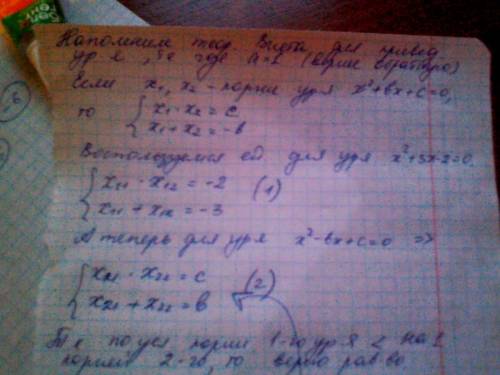 Напомним теор. Виета для привед
ур-я, т.е где a=1 (верно и обратную)
Если x₁, x₂ - корни ур-я x²+bx+c=0,
то { x₁·x₂ = c
x₁+x₂ = -b
Воспользуемся ей для ур-я x²+3x-2=0.
{ x₁₁ · x₁₂ = -2 (1)
x₁₁ + x₁₂ = -3
А теперь для ур-я x²-bx+c=0 =>
{ x₂₁ · x₂₂ = c (2)
x₂₁ + x₂₂ = b
Т.к по усл корни 1-го ур-я < на 1
корней 2-го, то верно рав-во